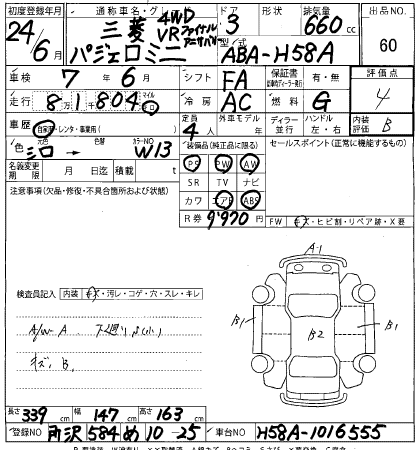 初度登録年月 通称車名・グレード ドア 形状 排気量 出品NO
24年 三菱 4WD 3 660cc 60
VRファイナルアニバーサリー
6月 パジェロミニ 型式 ABA-H58A
車検 7年6月 シフト FA 保証書 有・無 評価点
4
走行 81,804 マイル キロ 冷房 AC 燃料 G
車歴 自家用・レンタ・事業用( ) 定員 4人 外車モデル 年 ディーラー 並行 ハンドル 左・右 内装評価 B
色 元色 シロ → 色替 カラーNO W13 装備品(純正品に限る) セールスポイント(正常に機能するもの)
名義変更期限 月 日迄 積載 t PS PW AW
注意事項(欠品・修復・不具合箇所および状態) SR TV ナビ
カワ エアB ABS
R券 9,970
FW キズ・ヒビ割・リペア跡・X要
A1
検査員記入 内装 キズ・汚レ・コゲ・穴・スレ・キレ
A/W A. 下廻りS(小)
キズ, B.
B1 B2 B1
長さ 339cm 幅 147cm 高さ 163cm
登録NO 所沢 584 め 10-25 車台NO H58A-1016555